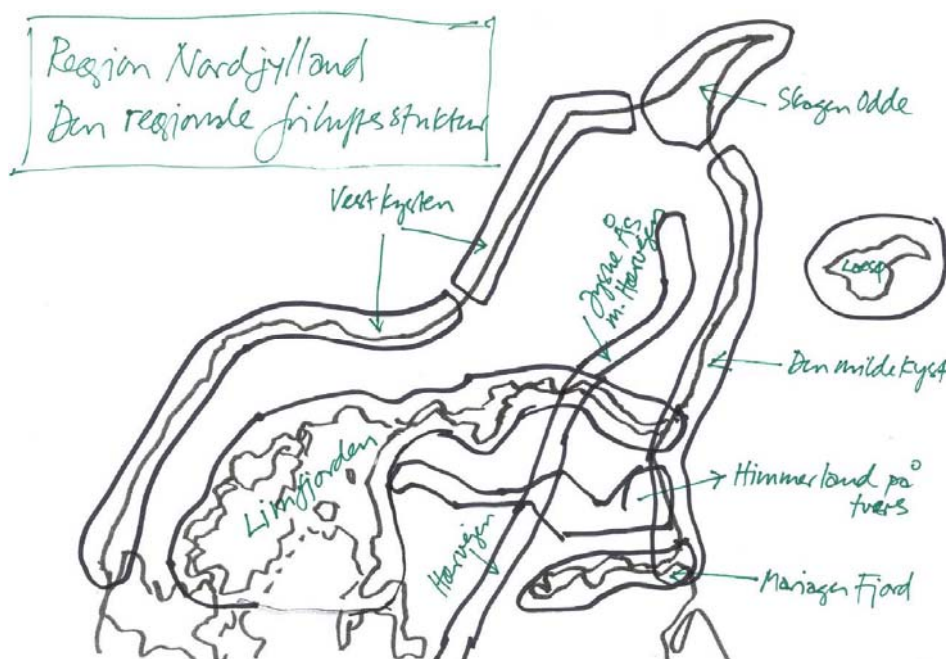 Region Nordjylland
Den regionale friluftsstruktur
Skagen Odde
Vestkysten
Jyske Ås
m. Hærvejen
Læsø
Den milde Kyst
Limfjorden
Himmerland på
tværs
Hærvejen
Mariager Fjord